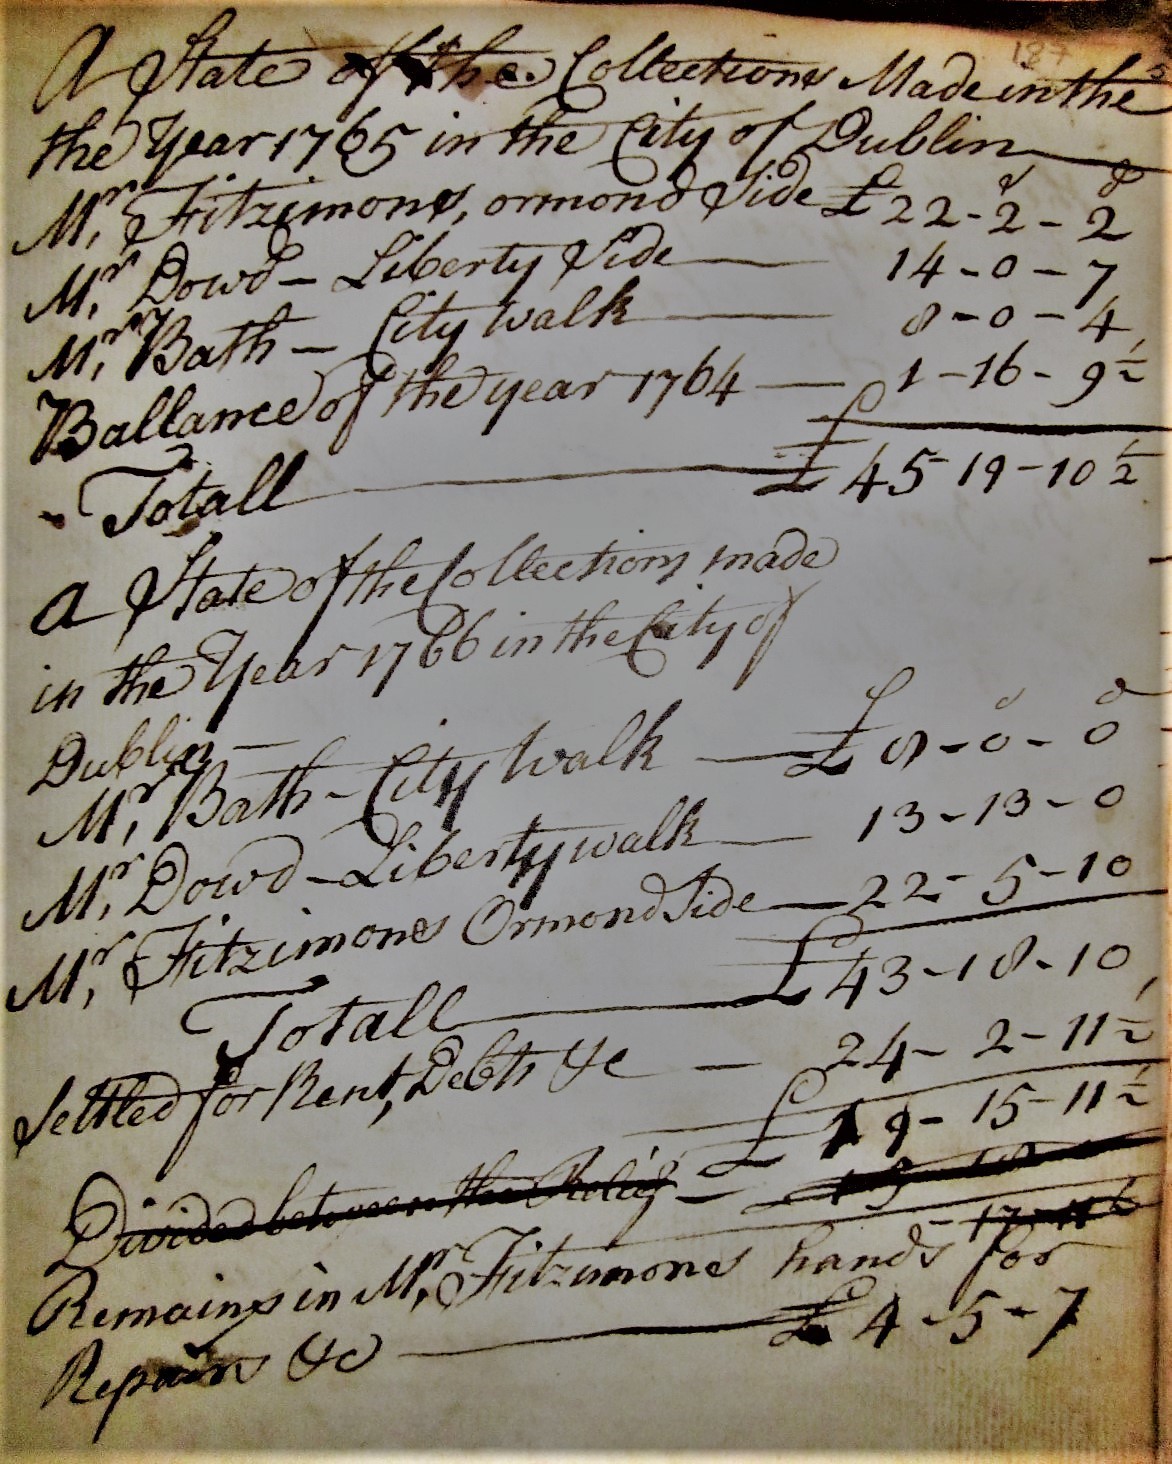 187
A State of the Collections Made in the
the Year 1765 in the City of Dublin
Mr. Fitzimons, ormond Side £22-2-2
Mr. Dowd - Liberty Side 14-0-7
Mr. Bath - City walk 8-0-4
Ballance of the year 1764 - 1-16-9½
Totall £45-19-10½
a State of the Collections made
in the Year 1766 in the City of
Dublin -
Mr. Bath - City Walk - £8-0-0
Mr. Dowd - Liberty walk 13-13-0
Mr. Fitzimons Ormond Side - 22-5-10
Totall £43-18-10
Settled for Rent, Debts &c - 24-2-11½
£19-15-11½
Divided between the Relig -
Remains in Mr. Fitzimons hands for
Repairs &c £4-5-7